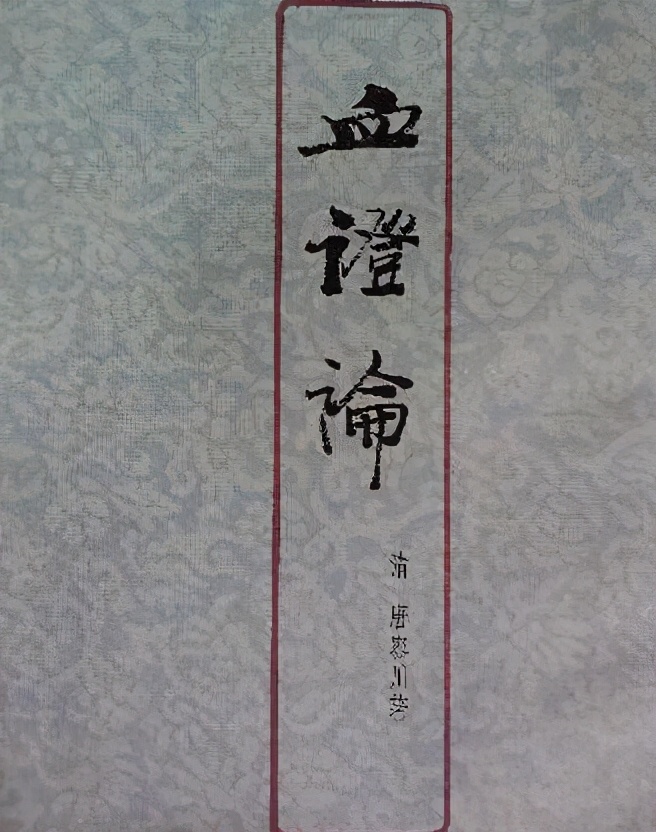 血證論
清 唐容川著